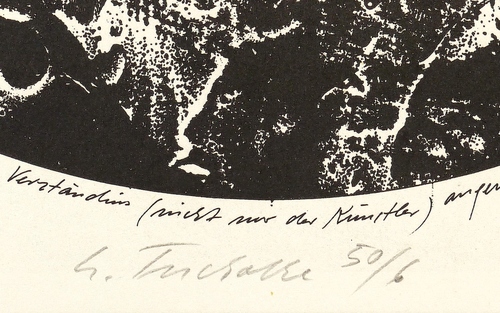 Verständnis (nicht nur der Künstler) anger
h. Tucholke 50/6